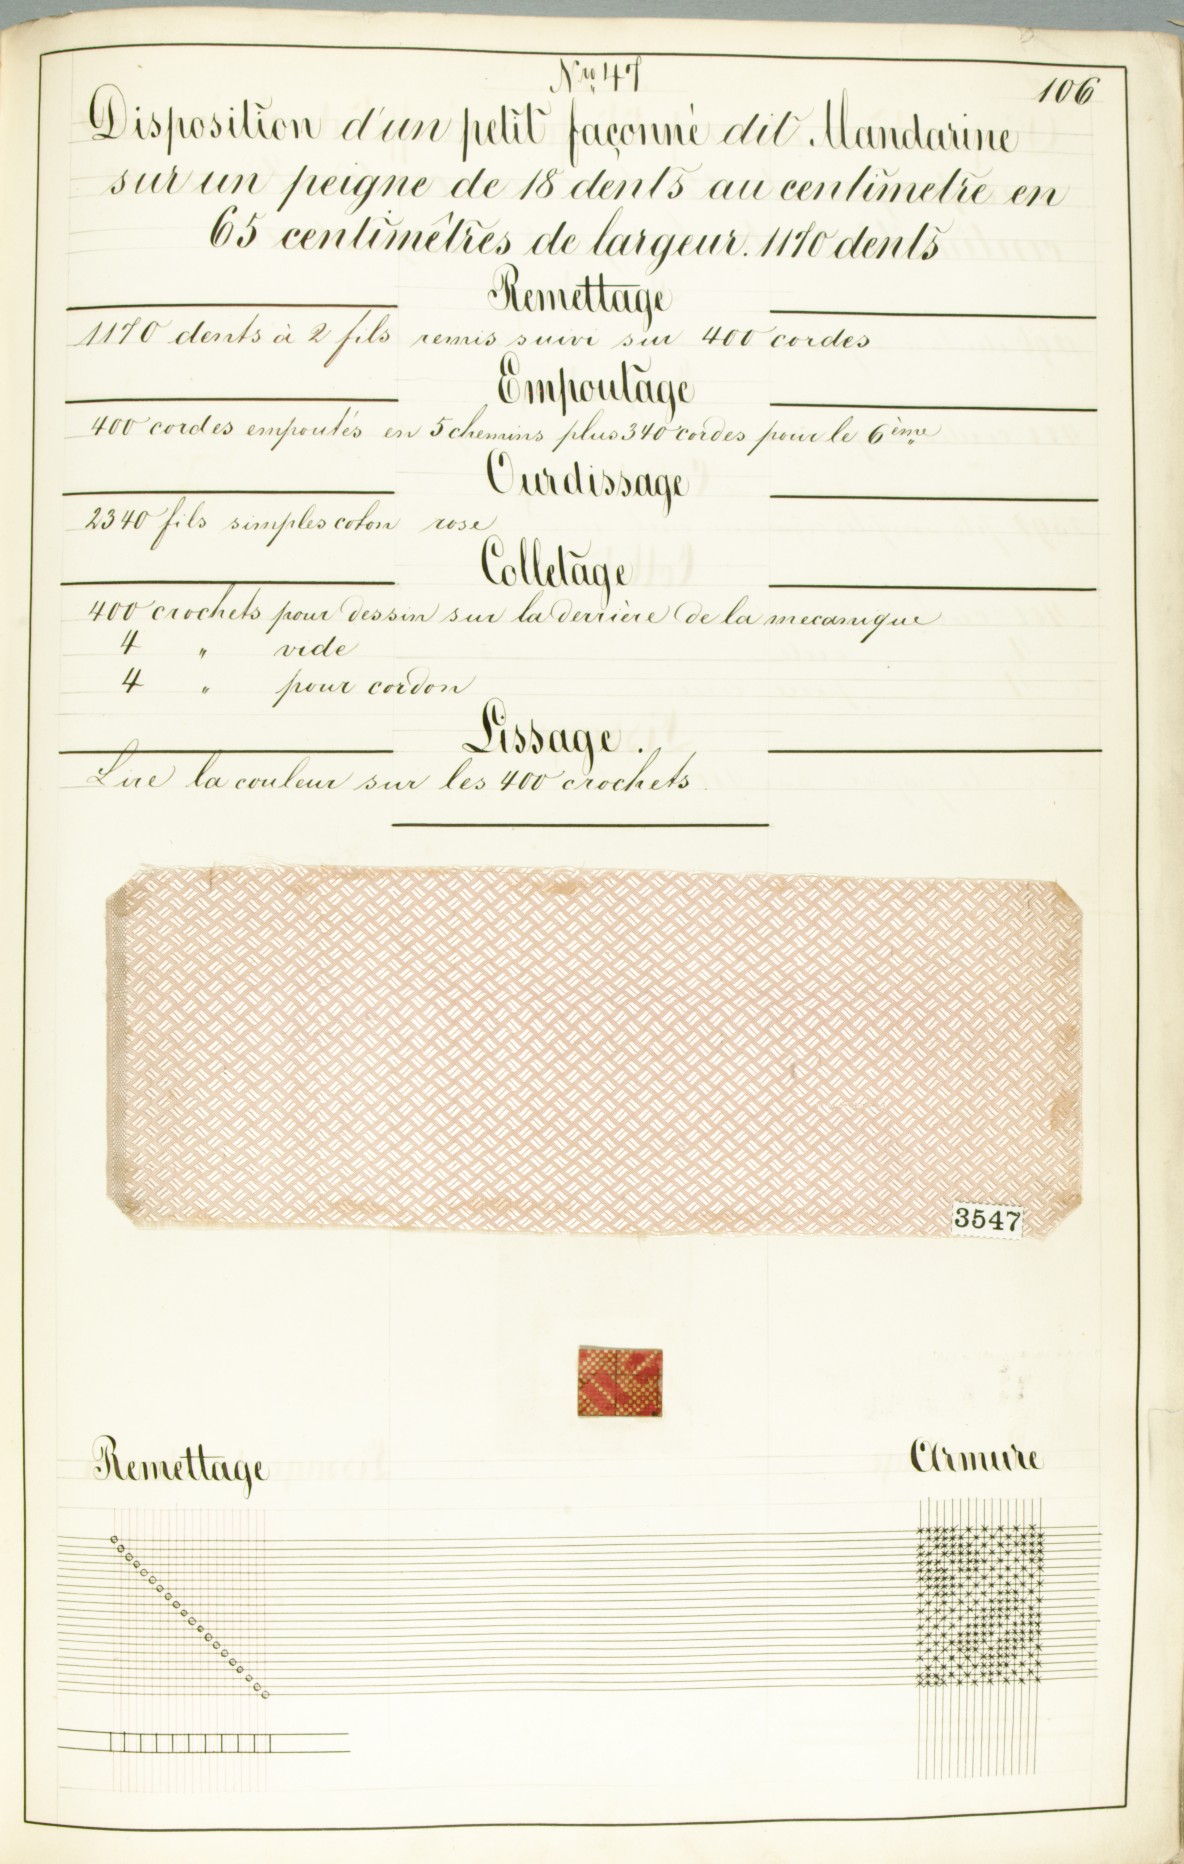 Nº 47
106
Disposition d'un petit façonné dit Mandarine
sur un peigne de 18 dents au centimetre en
65 centimêtres de largeur. 1170 dents
Remettage
1170 dents à 2 fils remis suivi sur 400 cordes
Empoutage
400 cordes empoutés en 5 chemins plus 340 cordes pour le 6ème
Ourdissage
2340 fils simples coton rose
Colletage
400 crochets pour dessin sur la derrière de la mecanique
4 " vide
4 " pour cordon
Lissage.
Lire la couleur sur les 400 crochets
3547
Remettage
Armure